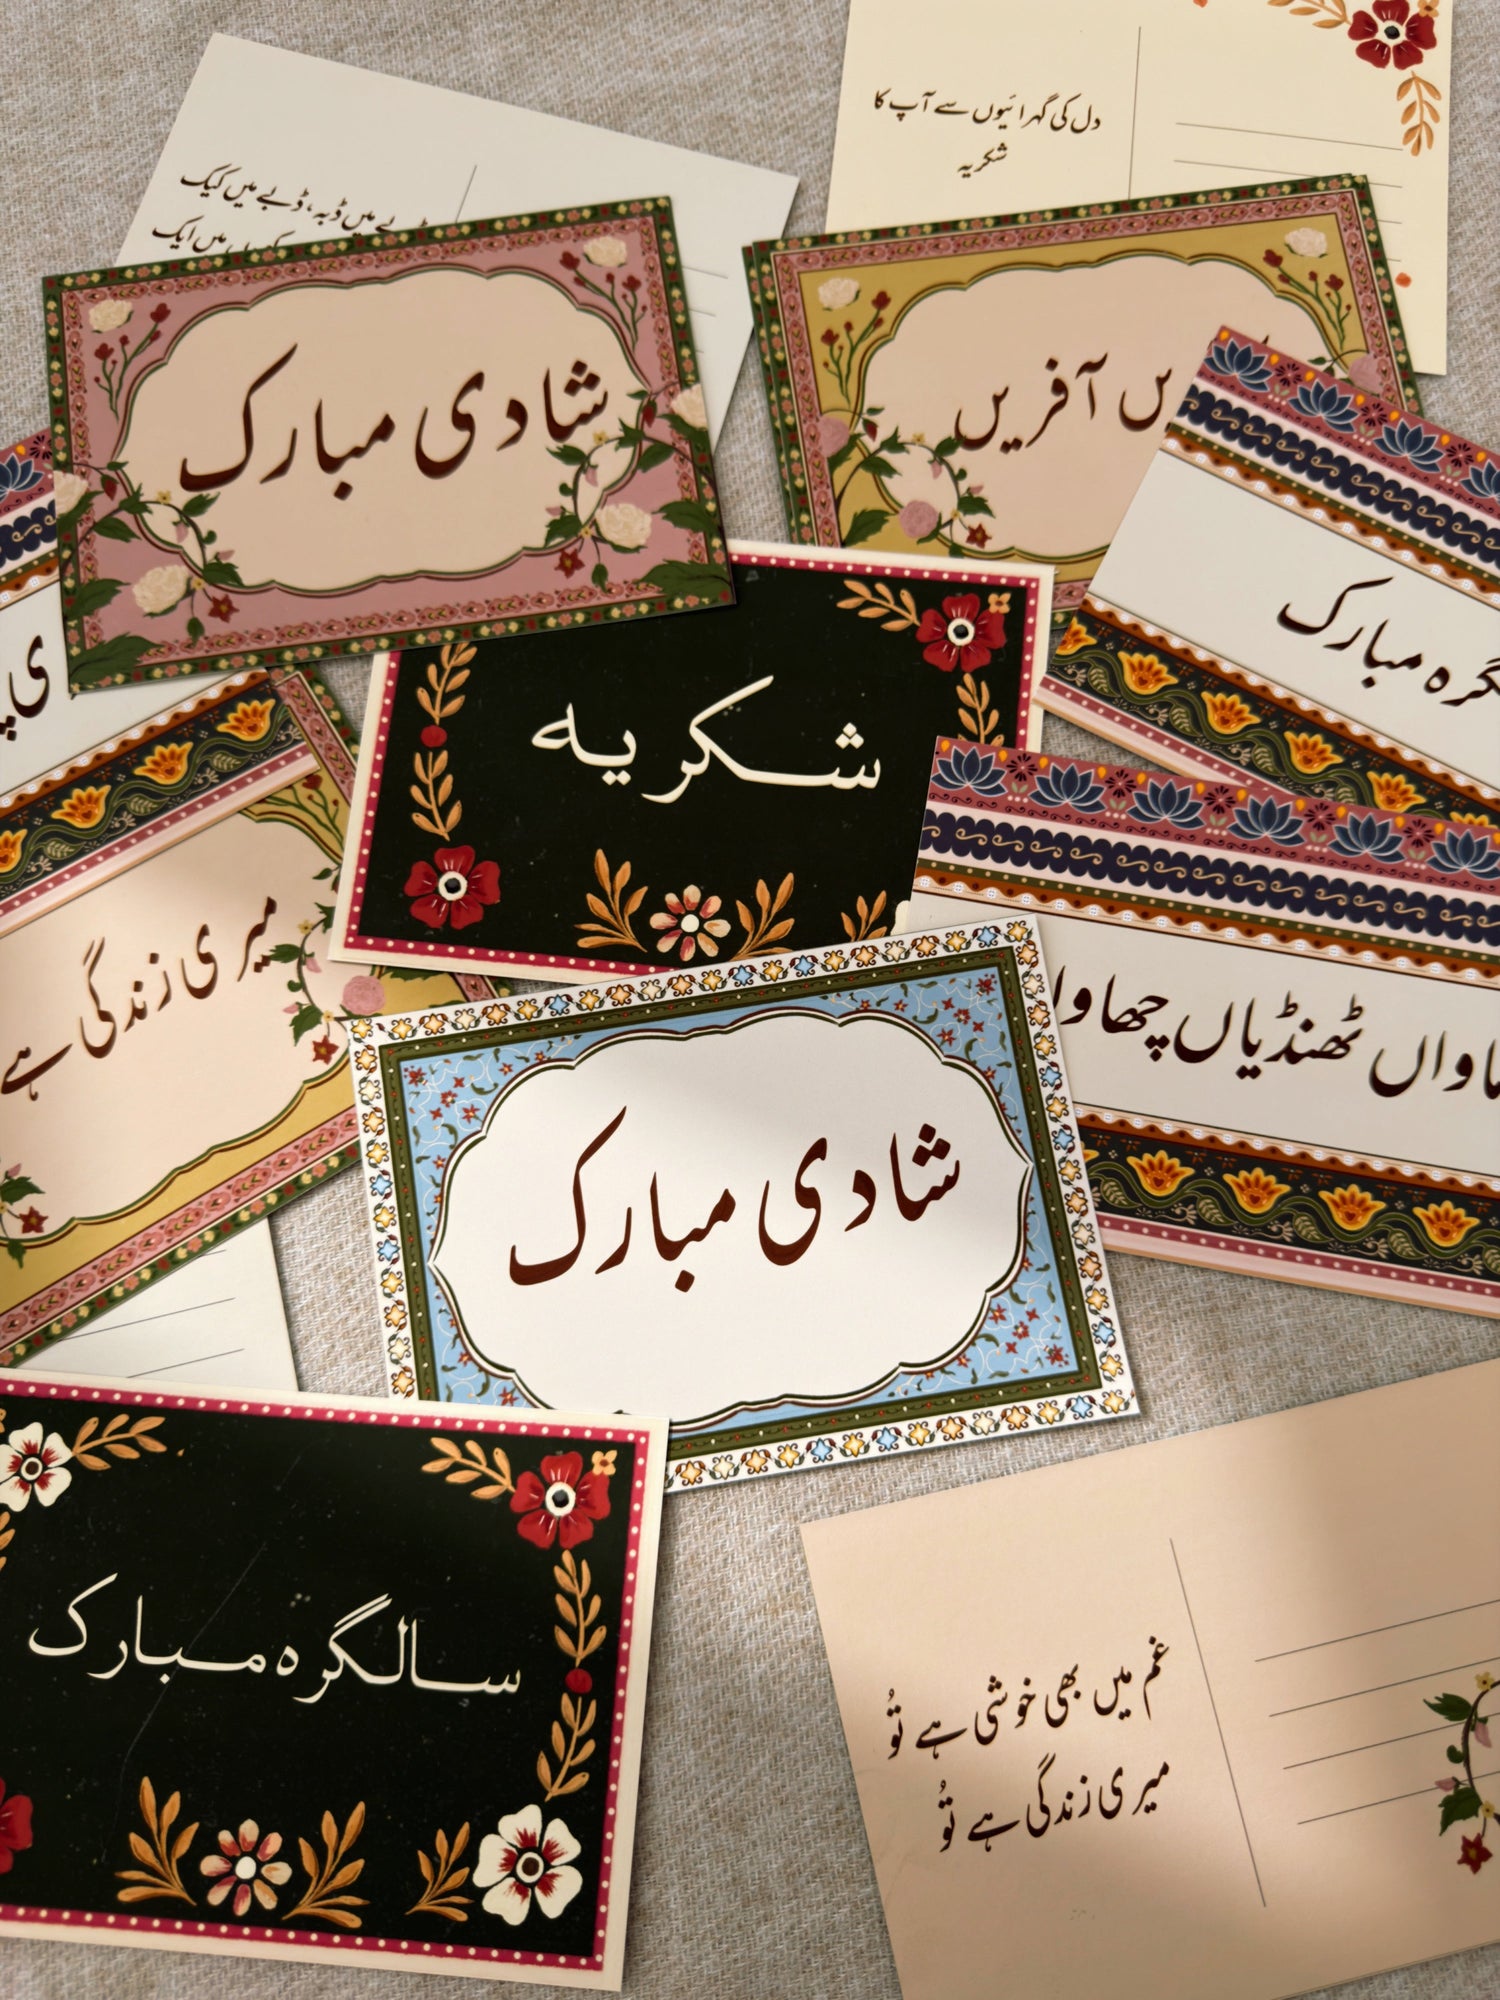 دل کی گہرائیوں سے آپ کا
شکریہ
ڈبہ، ڈبے میں کیک
میں ایک
شادی مبارک
آفریں
گرہ مبارک
شکریہ
میری زندگی ہے
ٹھنڈیاں چھاواں
شادی مبارک
سالگرہ مبارک
غم میں بھی خوشی ہے تُو
میری زندگی ہے تُو